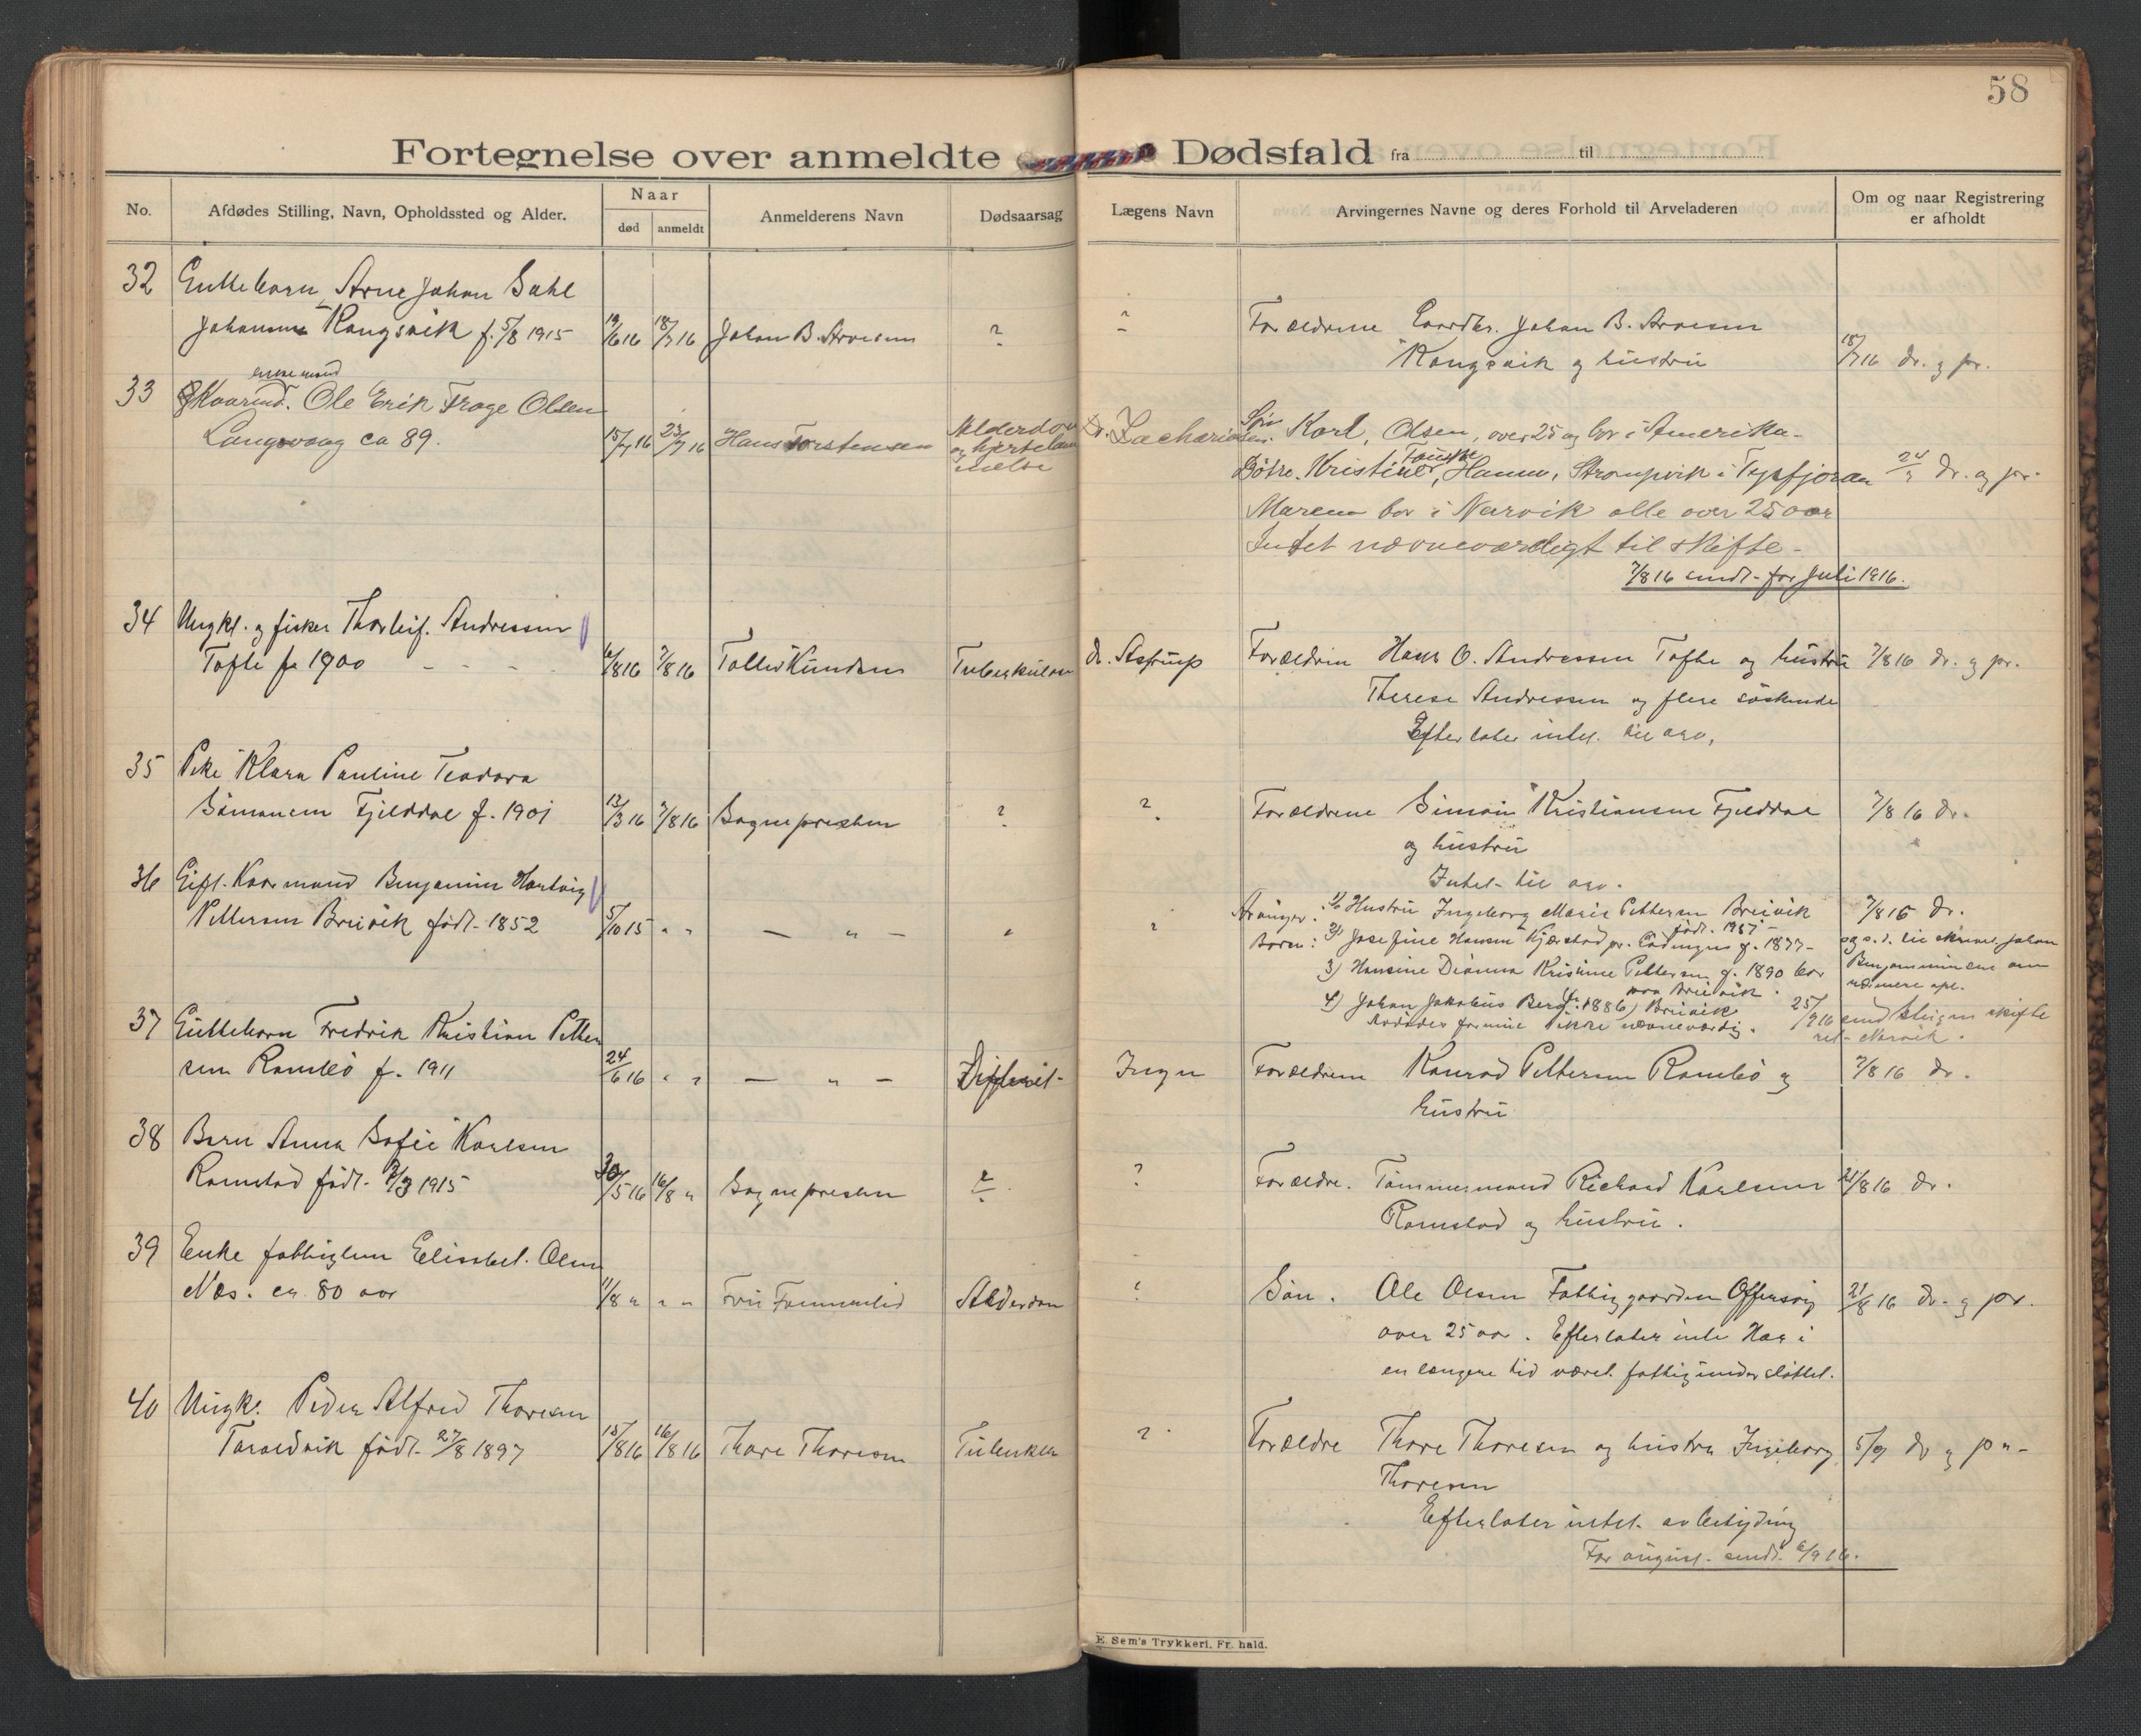 58
Fortegnelse over anmeldte Dødsfald fra til
No.
Afdødes Stilling, Navn, Opholdssted og Alder.
Naar
død anmeldt
Anmelderens Navn
Dødsaarsag
Lægens Navn
Arvingernes Navne og deres Forhold til Arveladeren
Om og naar Registrering
er afholdt
32 Guttebarn Arne Johan Dahl
Johansen Kongsvik f. 5/8 1915 19/6 16 18/7 16 Johan B. Arvesen ?
? Forældrene Gaardbr. Johan B. Arvesen
Kongsvik og hustru 18/7 16 dr. og pr.
enkemand
33 Kaarmd. Ole Erik Frage Olsen
Langvaag ca 89. 15/7 16 23/7 16 Hans Torstensen Alderdom
og hjertelam
melse
Dr. Zachariassen. Søn Karl, Olsen, over 25 og bor i Amerika-
Døtre. Kristine, Tauske, Hanna, Strompvik i Tysfjorden 24/7 dr. og pr.
Maren bor i Narvik alle over 25 aar
Intet nævneværdigt til skifte-
7/8 16 sendt for Juli 1916.
34 Ungkl. og fisker Thorleif Andressen
Tofte f. 1900 6/8 16 7/8 16 Tollev Knudsen Tuberkulose
dr. Astrup Forældrene Hans O. Andressen Tofte og hustru 7/8 16 dr. og pr.
Therese Andressen og flere søskende
Efterlater intet til arv,
35 Pike Klara Pauline Teodora
Simonsen Fjelddal f. 1901 13/3 16 7/8 16 Sognepresten ?
? Forældrene Simon Kristiansen Fjelddal 7/8 16 dr.
og hustru
Intet til arv.
36 Gift. Kaarmand Benjamin Hartvig
Pettersen Breivik født 1852 5/10 15 " " — " —
? Arvinger: 1) Hustru Ingeborg Marie Pettersen Breivik 7/8 16 dr.
født. 1857-
Børn: 2) Josefine Hansen Kjærstad pr. Lødingen f. 1877-
og s. d. til skrevet Johan
3) Hansine Dianna Kristine Pettersen f. 1890 bor
Benjaminsen om
paa Breivik.
nærmere opl.
4) Johan Jakobius Berg (f. 1886) Breivik
25/9 16 send Steigen skifte
Avdødes formue ikke nævneværdig.
ret- Narvik.
37 Guttebarn Fredrik Kristian Petter
sen Rambø f. 1911 24/6 16 " " — " — Difterit-
Ingen Forældrene Konrad Pettersen Rambø og 7/8 16 dr.
hustru
38 Barn Anna Sofie Karlsen
Ramstad født 2/3 1915 30/5 16 16/8 " Sognepresten ?
? Forældre. Tømmermand Richard Karlsen 21/8 16 dr.
Ramstad og hustru.
39 Enke fattiglem Elisabet Olsen
Næs. ca. 80 aar 11/8 " " " Fru Alderdom
? Søn. Ole Olsen Fattiggaarden Offersøy 21/8 16 dr. og pr.
over 25 aar. Efterlater intet Har i
en længere tid været fattigunderstøttet.
40 Ungk. Peder Alfred Thoresen
Taraldvik født 27/8 1897 15/8 16 16/8 16 Thore Thoresen Tuberkler
? Forældre Thore Thoresen og hustru Ingeborg 5/9 dr og pr-
Thoresen
Efterlater intet av betydning
For august sendt 6/9 16.
E. Sem's Trykkeri, Fr. hald.